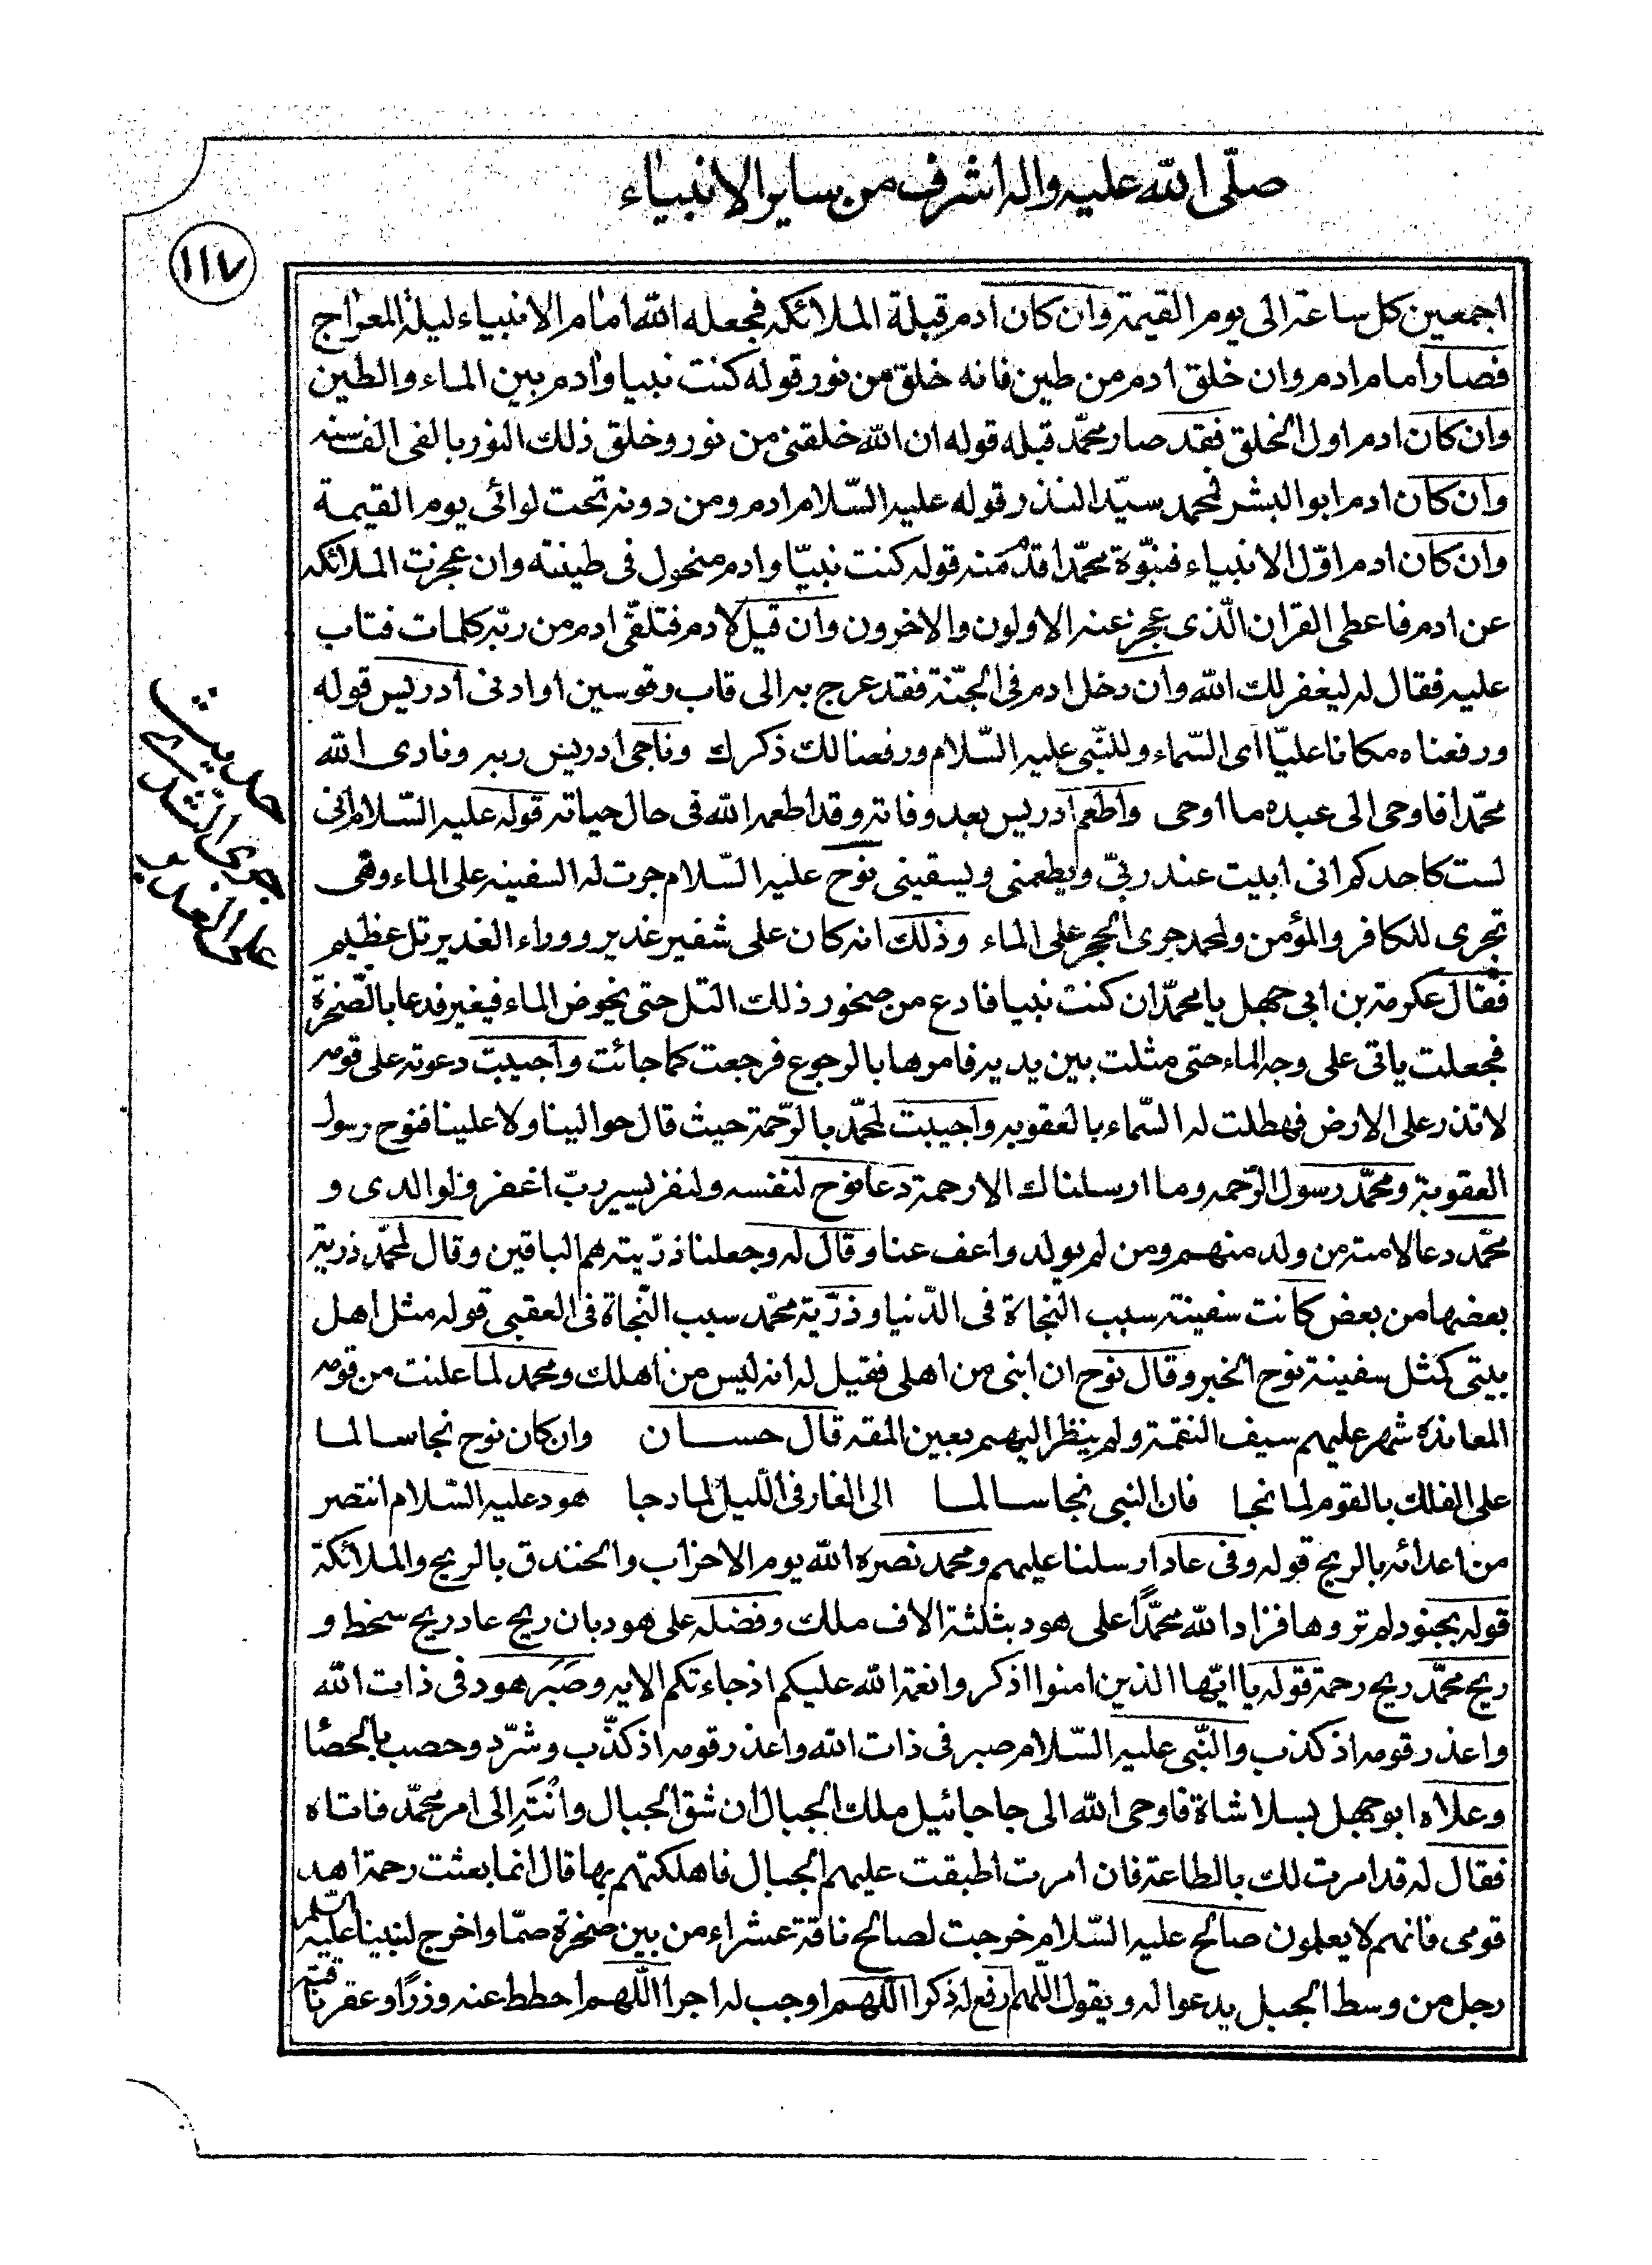 صلّى الله عليه واله اشرف من ساير الانبياء
١١٧
اجمعين كل ساعة الى يوم القيمة وان كان ادم قبلة الملائكه فجعله الله امام الانبياء ليلة المعراج
فصار امام ادم وان خلق ادم من طين فانه خلق من نور قوله كنت نبيا وادم بين الماء والطين
وان كان ادم اول الخلق فقد صار محمّد قبله قوله ان الله خلقنى من نور وخلق ذلك النور بالفى الف سنه
وان كان ادم ابو البشر فمحمد سيّد النذر قوله عليه السّلام ادم ومن دونه تحت لوائى يوم القيمة
وان كان ادم اوّل الانبياء فنبوّة محمّد اقدم منه قوله كنت نبيّا وادم منخول فى طينته وان عجزت الملائكه
عن ادم فاعطى القران الّذى عجز عنه الاولون والاخرون وان قيل لادم فتلقّى ادم من ربّه كلمات فتاب
عليه فقال له ليغفر لك الله وان دخل ادم فى الجنّة فقد عرج به الى قاب وقوسين او ادنى ادريس قوله
ورفعناه مكانا عليّا اى السّماء وللنّبى عليه السّلام ورفعنا لك ذكرك وناجى ادريس ربه ونادى الله
محمّدا فاوحى الى عبده ما اوحى واطعم ادريس بعد وفاته وقد اطعمه الله فى حال حياته قوله عليه السّلام انى
لست كاحدكم انى ابيت عند ربّى ويطعمنى ويسقينى نوح عليه السّلام جرت له السفينه على الماء وهى
تجرى للكافر والمؤمن ولمحمد جرى الحجر على الماء وذلك انه كان على شفير غدير ووراء الغدير تل عظيم
فقال عكرمة بن ابى جهل يا محمّد ان كنت نبيا فادع من صخور ذلك التل حتى يخوض الماء فيغير فدعا بالصّخرة
فجعلت ياتى على وجه الماء حتى مثلت بين يديه فامرها بالرجوع فرجعت كما جائت واجيبت دعوته على قومه
لا تذر على الارض فهطلت له السّماء بالعقوبه واجيبت لمحمّد بالرّحمة حيث قال حوالينا ولا علينا فنوح رسول
العقوبة ومحمّد رسول الرّحمه وما ارسلناك الا رحمة دعا نوح لنفسه ولنفر يسير ربّ اغفر لى ولوالدى و
محمّد دعا لامته من ولد منهم ومن لم يولد واعف عنا وقال له وجعلنا ذرّيته هم الباقين وقال لمحمّد ذرية
بعضها من بعض كانت سفينة سبب النجاة فى الدّنيا وذرّية محمّد سبب النّجاة فى العقبى قوله مثل اهل
بيتى كمثل سفينة نوح الخبر وقال نوح ان ابنى من اهلى فقيل له انه ليس من اهلك ومحمد لما علنت من قومه
المعانده شهر عليهم سيف النقمة ولم ينظر اليهم بعين المقه قال حسان وان كان نوح نجا سالما
على الفلك بالقوم لما نجا فان النبى نجا سالما الى الغار فى اللّيل لما دجا هود عليه السّلام انتصر
من اعدائه بالريح قوله وفى عاد ارسلنا عليهم ومحمد نصره الله يوم الاحزاب والخندق بالريح والملائكة
قوله بجنود لم تروها فزاد الله محمّداً على هود بثلثة الاف ملك وفضله على هود بان ريح عاد ريح سخط و
ريح محمّد ريح رحمة قوله يا ايّها الذين امنوا اذكروا نعمة الله عليكم اذ جاءتكم الايه وصَبَر هود فى ذات الله
واعذر قومه اذ كذب والنّبى عليه السّلام صبر فى ذات الله واعذر قومه اذ كذّب وشرّد وحصب بالحصا
وعلاه ابو جهل بسلا شاة فاوحى الله الى جاجائيل ملك الجبال ان شق الجبال وانْتَهِ الى امر محمّد فاتاه
فقال له قد امرت لك بالطاعة فان امرت اطبقت عليهم الجبال فاهلكتهم بها قال انما بعثت رحمة اهد
قومى فانهم لا يعلمون صالح عليه السّلام خرجت لصالح ناقة عشراء من بين صخرة صمّا واخرج لنبينا عليه السّلم
رجل من وسط الجبل يدعو له ويقول اللّهم ارفع له ذكرا اللّهم اوجب له اجرا اللّهم احطط عنه وزرًا وعقر ناقته
حديث
جرى
على الغدير